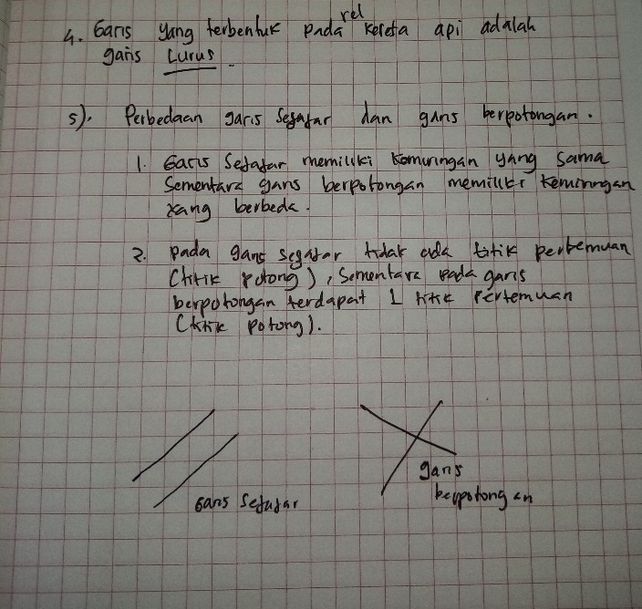 4. Garis yang terbentuk pada rel kereta api adalah
garis Lurus.
5). Perbedaan garis Sejajar dan garis berpotongan.
1. Garis Sejajar memiliki kemiringan yang sama
Sementara garis berpotongan memiliki kemiringan
yang berbeda.
2. pada garis sejajar tidak ada titik pertemuan
(titik potong), Sementara pada garis
berpotongan terdapat 1 titik pertemuan
(titik potong).
Garis Sejajar
garis
berpotongan